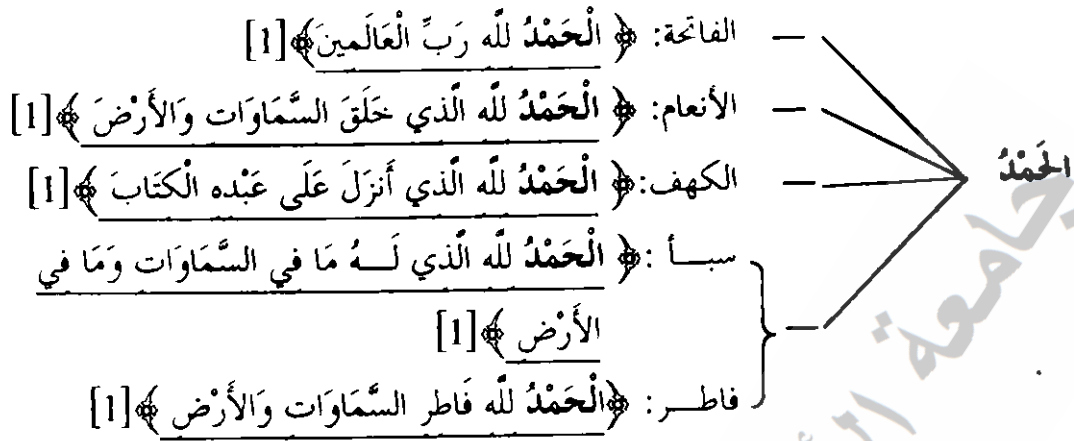 — الفاتحة: ﴿ الْحَمْدُ للَّه رَبِّ الْعَالَمينَ﴾[1]
— الأنعام: ﴿ الْحَمْدُ للَّه الَّذي خَلَقَ السَّمَاوَات وَالأَرْضَ ﴾[1]
الحَمْدُ
— الكهف:﴿ الْحَمْدُ للَّه الَّذي أَنزَلَ عَلَى عَبْده الْكتَابَ ﴾[1]
— سبـــأ :﴿ الْحَمْدُ للَّه الَّذي لَـــهُ مَا في السَّمَاوَات وَمَا في
الأَرْض ﴾[1]
فاطـــر: ﴿الْحَمْدُ للَّه فَاطر السَّمَاوَات وَالأَرْض ﴾[1]
جامعة